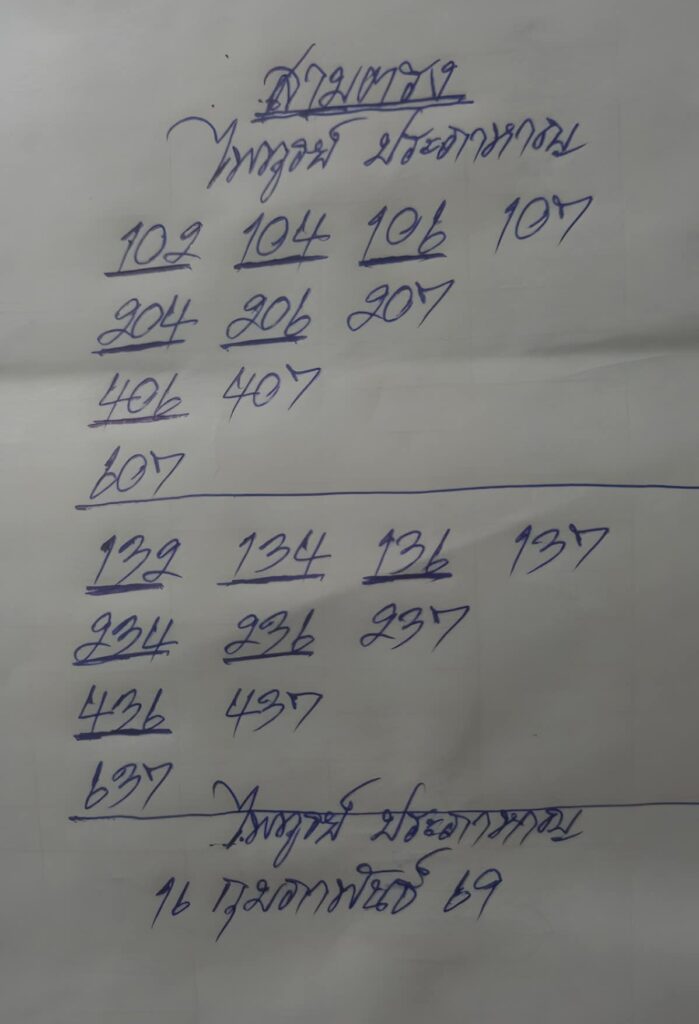 สามตรง
ไพฑูรย์ ประภาหาญ
102 104 106 107
204 206 207
406 407
607
132 134 136 137
234 236 237
436 437
637
ไพฑูรย์ ประภาหาญ
16 กุมภาพันธ์ 69